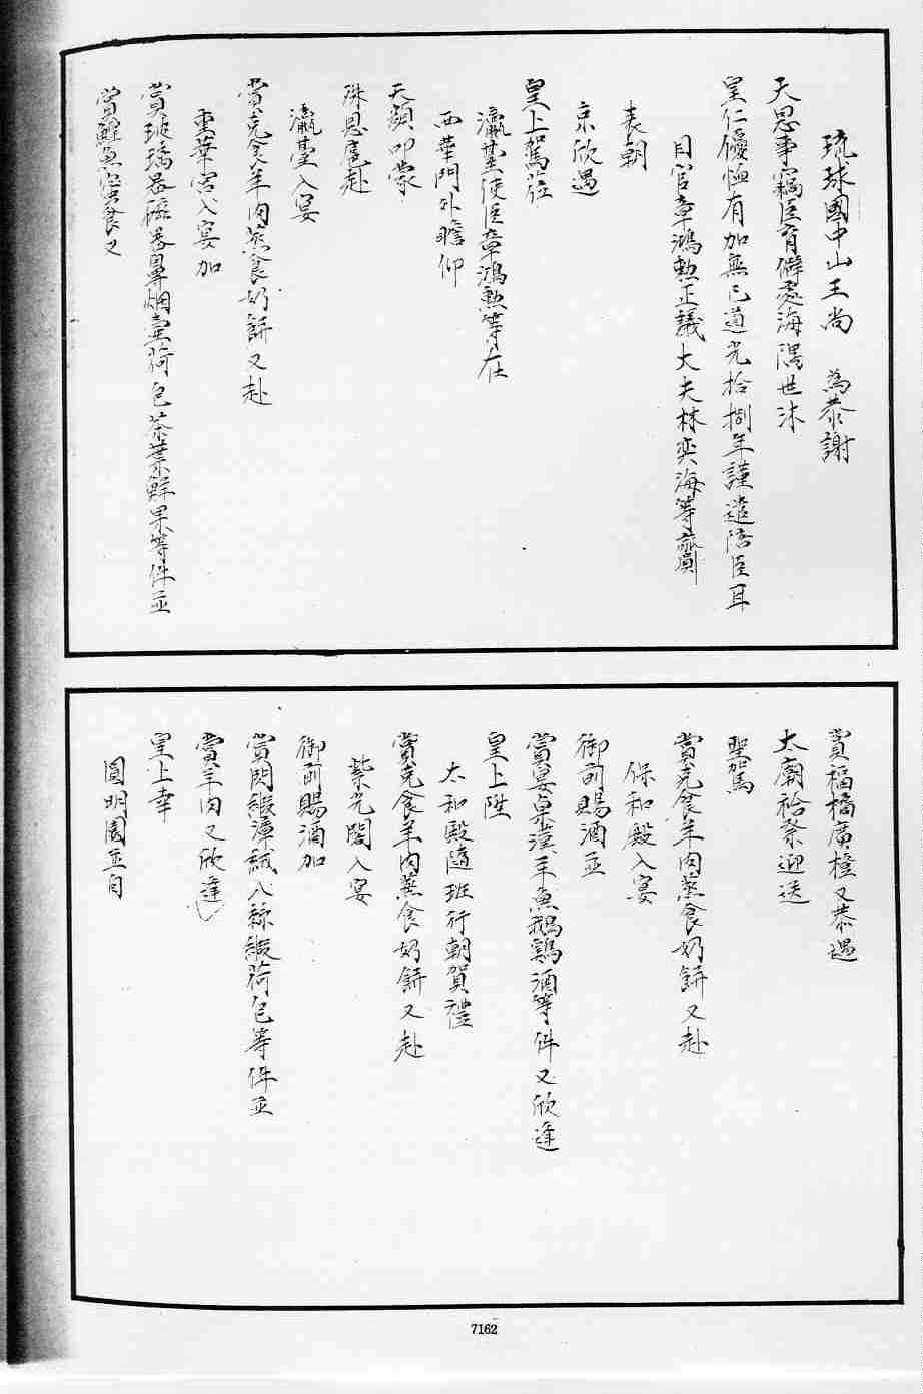 琉球國中山王尚　為恭謝
天恩事竊臣育僻處海隅世沐
皇仁優恤有加無已道光拾捌年謹遣陪臣耳
目官章鴻勲正議大夫林奕海等齎
表朝
京欣遇
皇上駕莅
瀛臺使臣章鴻勲等在
西華門外瞻仰
天顔叩蒙
殊恩扈赴
瀛臺入宴
賞克食羊肉蒸食奶餅又赴
重華宮入宴加
賞玻璃器磁器鼻烟壷荷包茶葉鮮果等件並
賞鮮魚蜜食又
賞福橘廣橙又恭遇
太廟祫祭迎送
聖駕
賞克食羊肉蒸食奶餅又赴
保和殿入宴
御前賜酒並
賞宴桌漢羊魚鵝鷄酒等件又欣逢
皇上陞
太和殿隨班行朝賀禮
賞克食羊肉蒸食奶餅又赴
紫光閣入宴
御前賜酒加
賞閃緞漳絨八絲緞荷包等件並
賞羊肉又欣逢
皇上幸
圓明園並自
7162